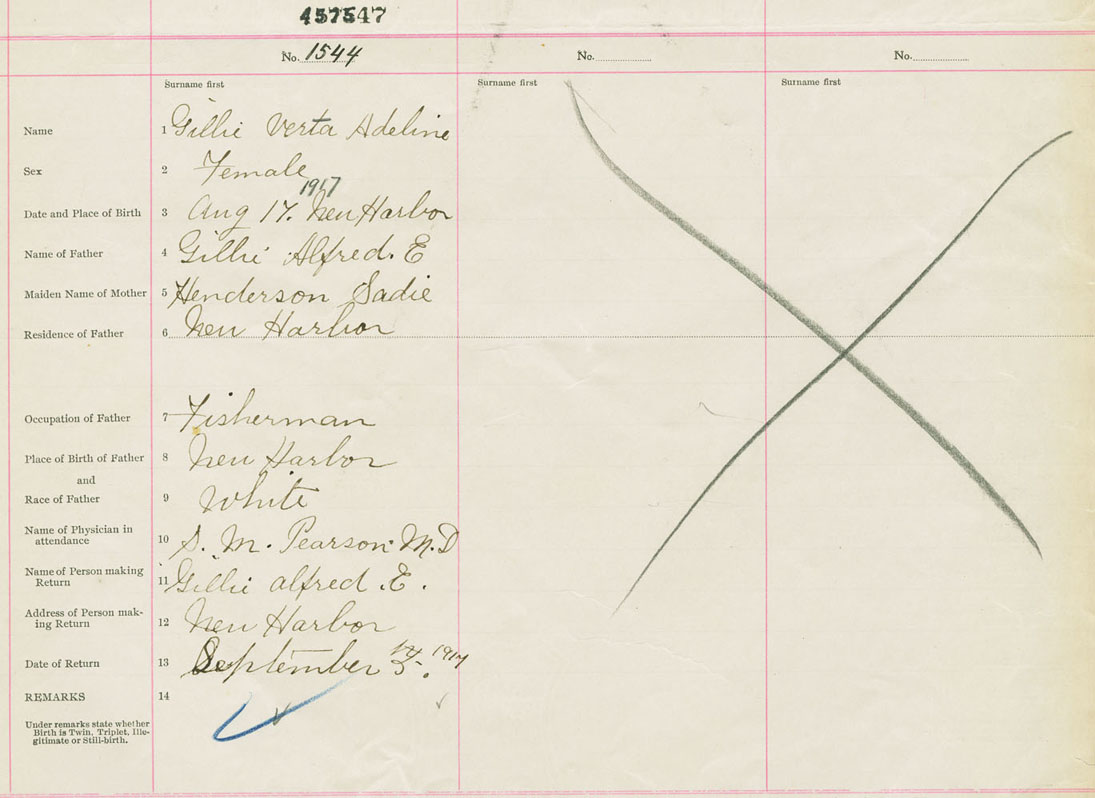 457547
No. 1544
No.
No.
Surname first
Surname first
Surname first
Name 1 Gillie Verta Adeline
Sex 2 Female
1917
Date and Place of Birth 3 Aug 17. New Harbor
Name of Father 4 Gillie Alfred. E
Maiden Name of Mother 5 Henderson Sadie
Residence of Father 6 New Harbor
Occupation of Father 7 Fisherman
Place of Birth of Father 8 New Harbor
and
Race of Father 9 White
Name of Physician in
attendance 10 S. M. Pearson M.D
Name of Person making
Return 11 Gillie alfred .E.
Address of Person mak-
ing Return 12 New Harbor
Date of Return 13 September 1917
REMARKS 14
Under remarks state whether
Birth is Twin, Triplet, Ille-
gitimate or Still-birth.